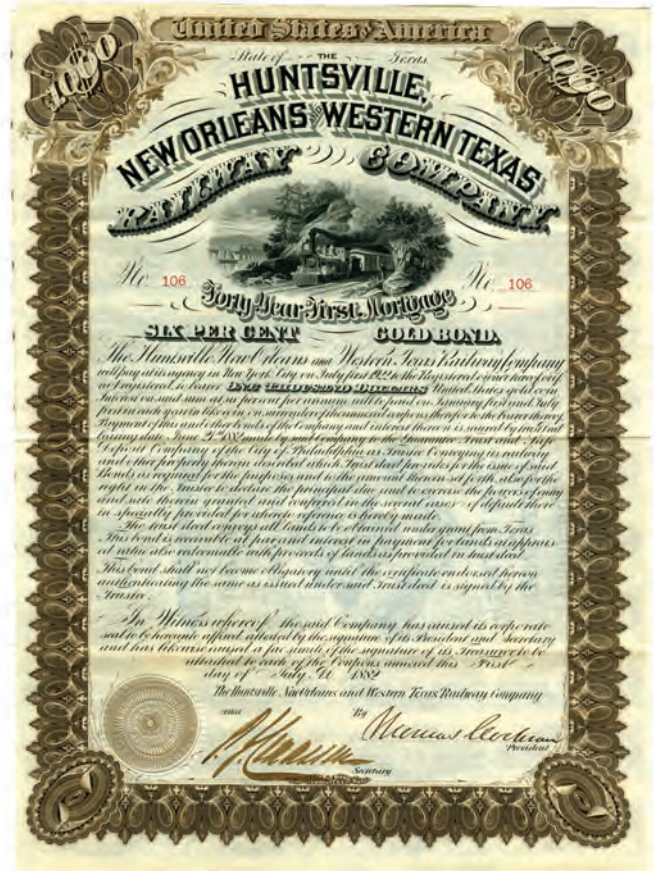 United States of America
$1000 $1000
State of THE Texas.
HUNTSVILLE,
NEW ORLEANS AND WESTERN TEXAS
RAILWAY COMPANY.
No. 106 No. 106
Forty Year First Mortgage
SIX PER CENT GOLD BOND.
The Huntsville New Orleans and Western Texas Railway Company
will pay at its agency in New York City on July first 1922 to the Registered owner hereof or if
not registered, to bearer ONE THOUSAND DOLLARS United States gold coin
Interest on said sum at six percent per annum will be paid on January first and July
first in each year in like coin, on surrender of the annexed coupons therefor to the bearer thereof
Payment of this and other bonds of the Company and interest thereon is secured by trust deed
bearing date, June 1882 made by said Company to the Guarantee Trust and Safe
Deposit Company of the City of Philadelphia as Trustee Conveying its railway
and other property therein described which Trust deed provides for the issue of said
Bonds as required for the purposes and to the amount therein set forth, also for the
right in the Trustee to declare the principal due and to exercise the powers of entry
and sale therein granted and conferred in the several cases of default there
in specially provided for whereto reference is hereby made.
The trust deed conveys all lands to be obtained under grant from Texas
This bond is receivable at par and interest in payment for lands at apprais
ed value also redeemable with proceeds of lands as provided in trust deed.
This bond shall not become obligatory until the certificate endorsed hereon
authenticating the same as issued under said Trust deed is signed by the
Trustee.
In Witness whereof the said Company has caused its corporate
seal to be hereunto affixed, attested by the signature of its President and Secretary
and has likewise caused a fac simile of the signature of its Treasurer to be
attached to each of the Coupons annexed this First
day of July 1882
The Huntsville New Orleans and Western Texas Railway Company
Attest By
Thomas Cochran
President
Secretary